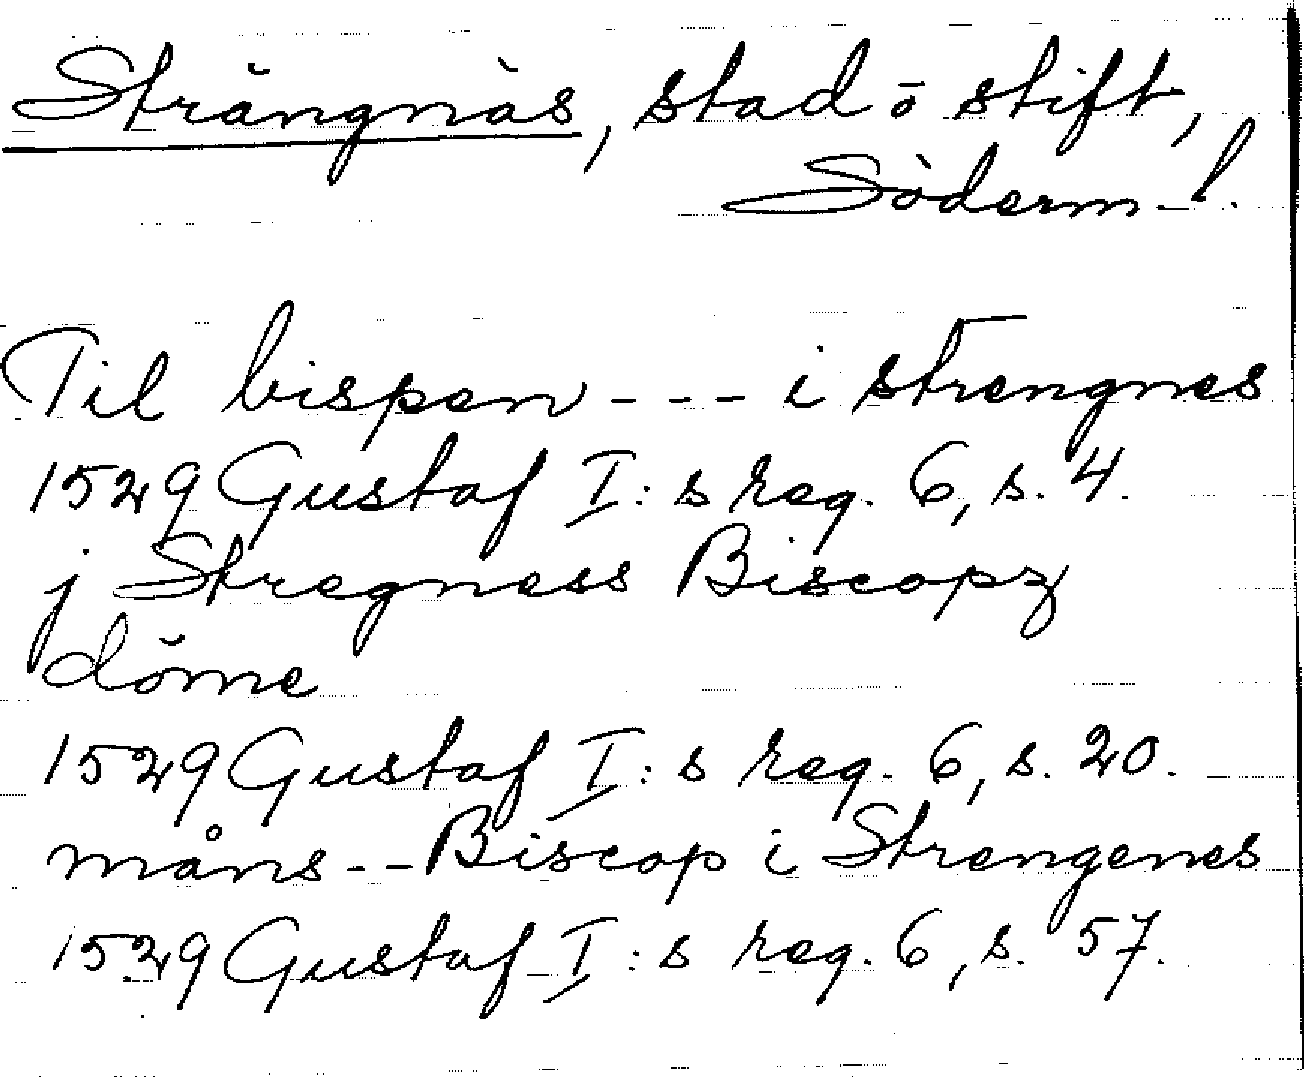 Strängnäs, stad o stift,
Söderm. l.
Til bispen --- i strengnes
1529 Gustaf I:s reg. 6, s. 4.
j Stregness Biscopz
döme
1529 Gustaf I:s reg. 6, s. 20.
måns -- Biscop i Strengenes
1529 Gustaf I:s reg. 6, s. 57.